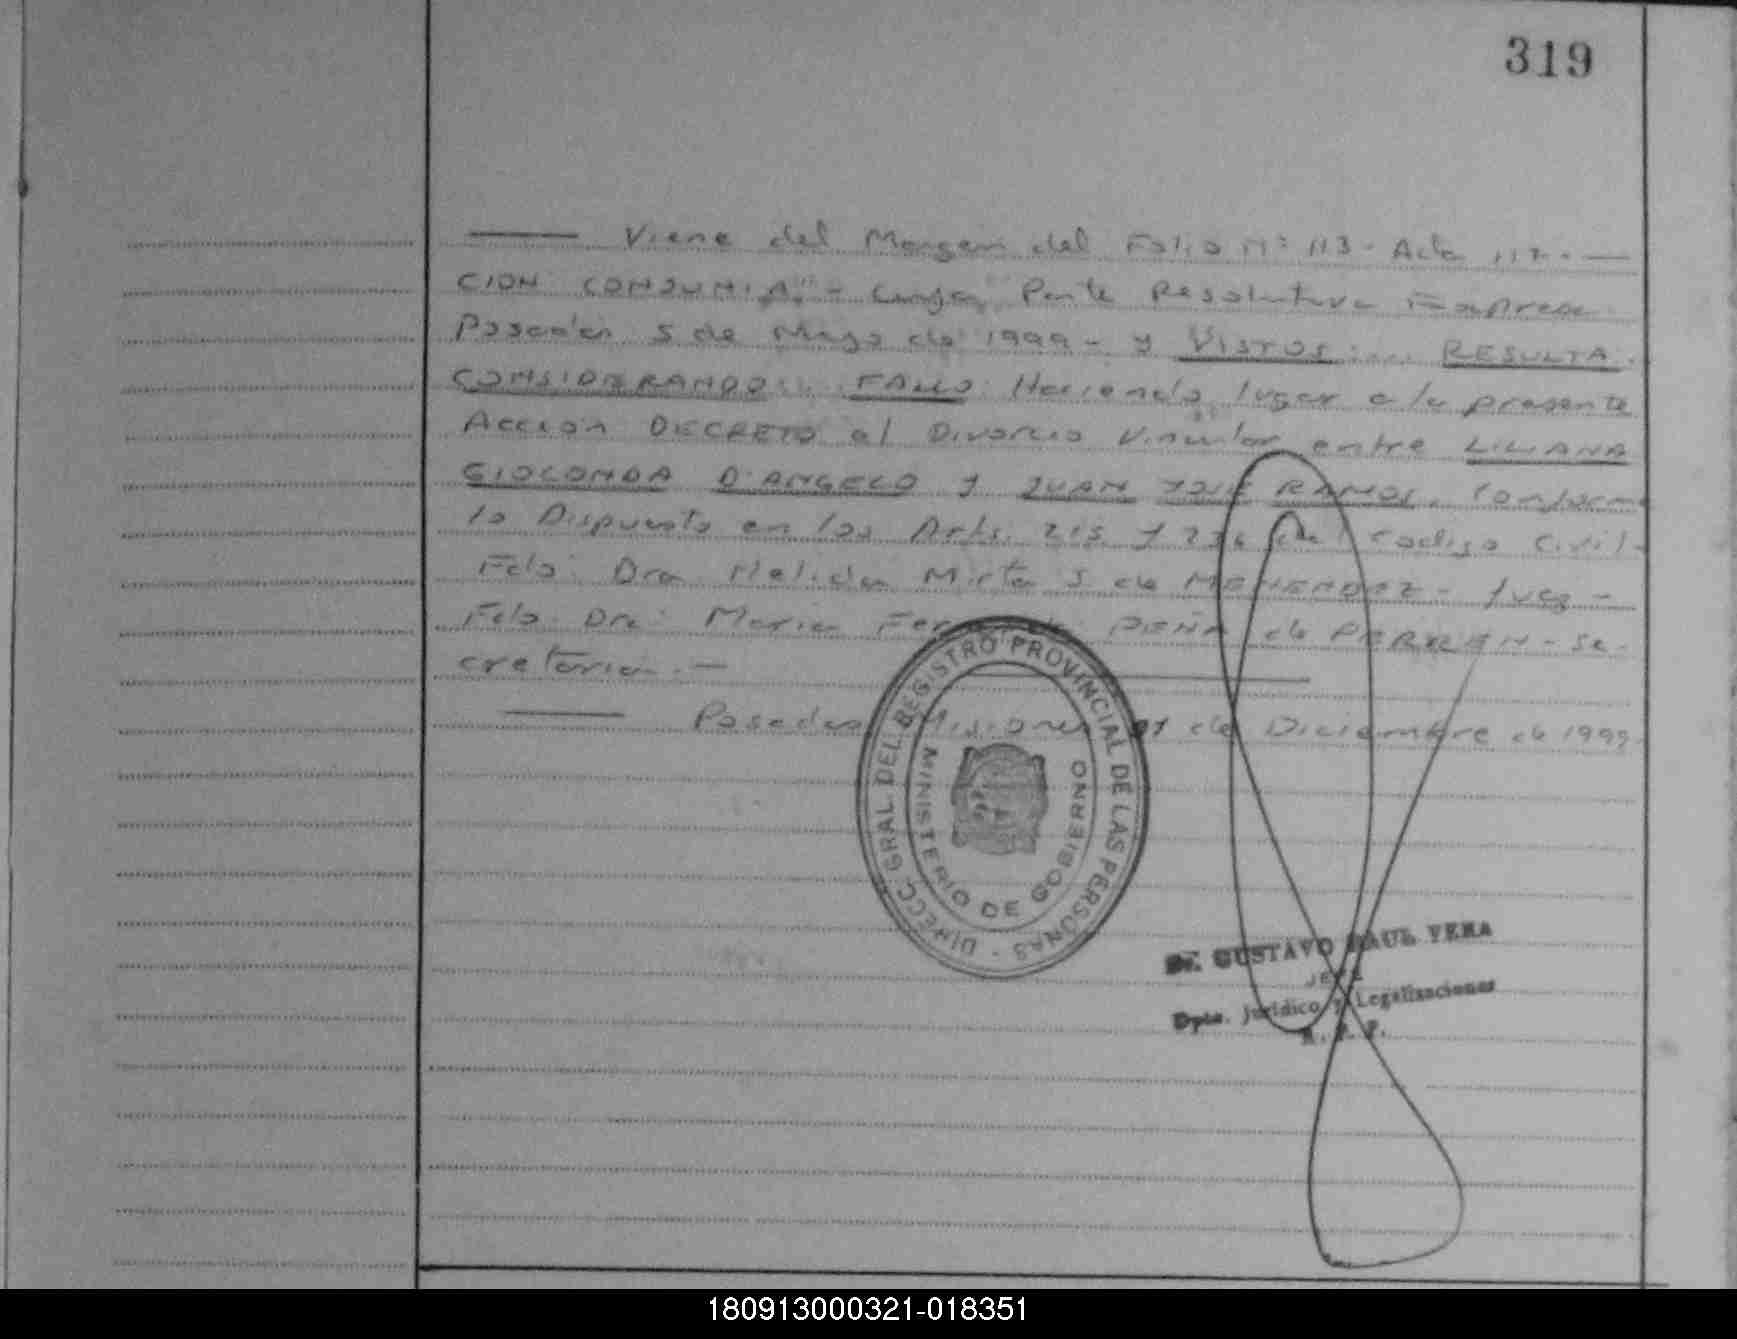 319
Viene del Margen del Folio Nº 113 - Acta 117 -
CION CONJUNTA" - cuya Parte Resolutiva Expresa:
Posadas 5 de Mayo de 1999 - y VISTOS: ... RESULTA.
CONSIDERANDO: ... FALLO: Haciendo lugar a la presente
Acción DECRETO el Divorcio Vincular entre LILIANA
GIOCONDA D'ANGELO y JUAN JOSE RAMOS, conforme
lo Dispuesto en los Arts. 215 y 236 del Codigo Civil -
Fdo: Dra Nelida Mirta S de MENENDEZ - Juez -
Fdo. Dra: Maria PEÑA de PERREN - Se-
cretaria. -
Posadas, Misiones de Diciembre de 1999.
DIRECC. GRAL. DEL REGISTRO PROVINCIAL DE LAS PERSONAS -
MINISTERIO DE GOBIERNO
Dr. GUSTAVO RAUL VERA
JEFE
Dpto. Jurídico y Legalizaciones
R. P. P.
180913000321-018351